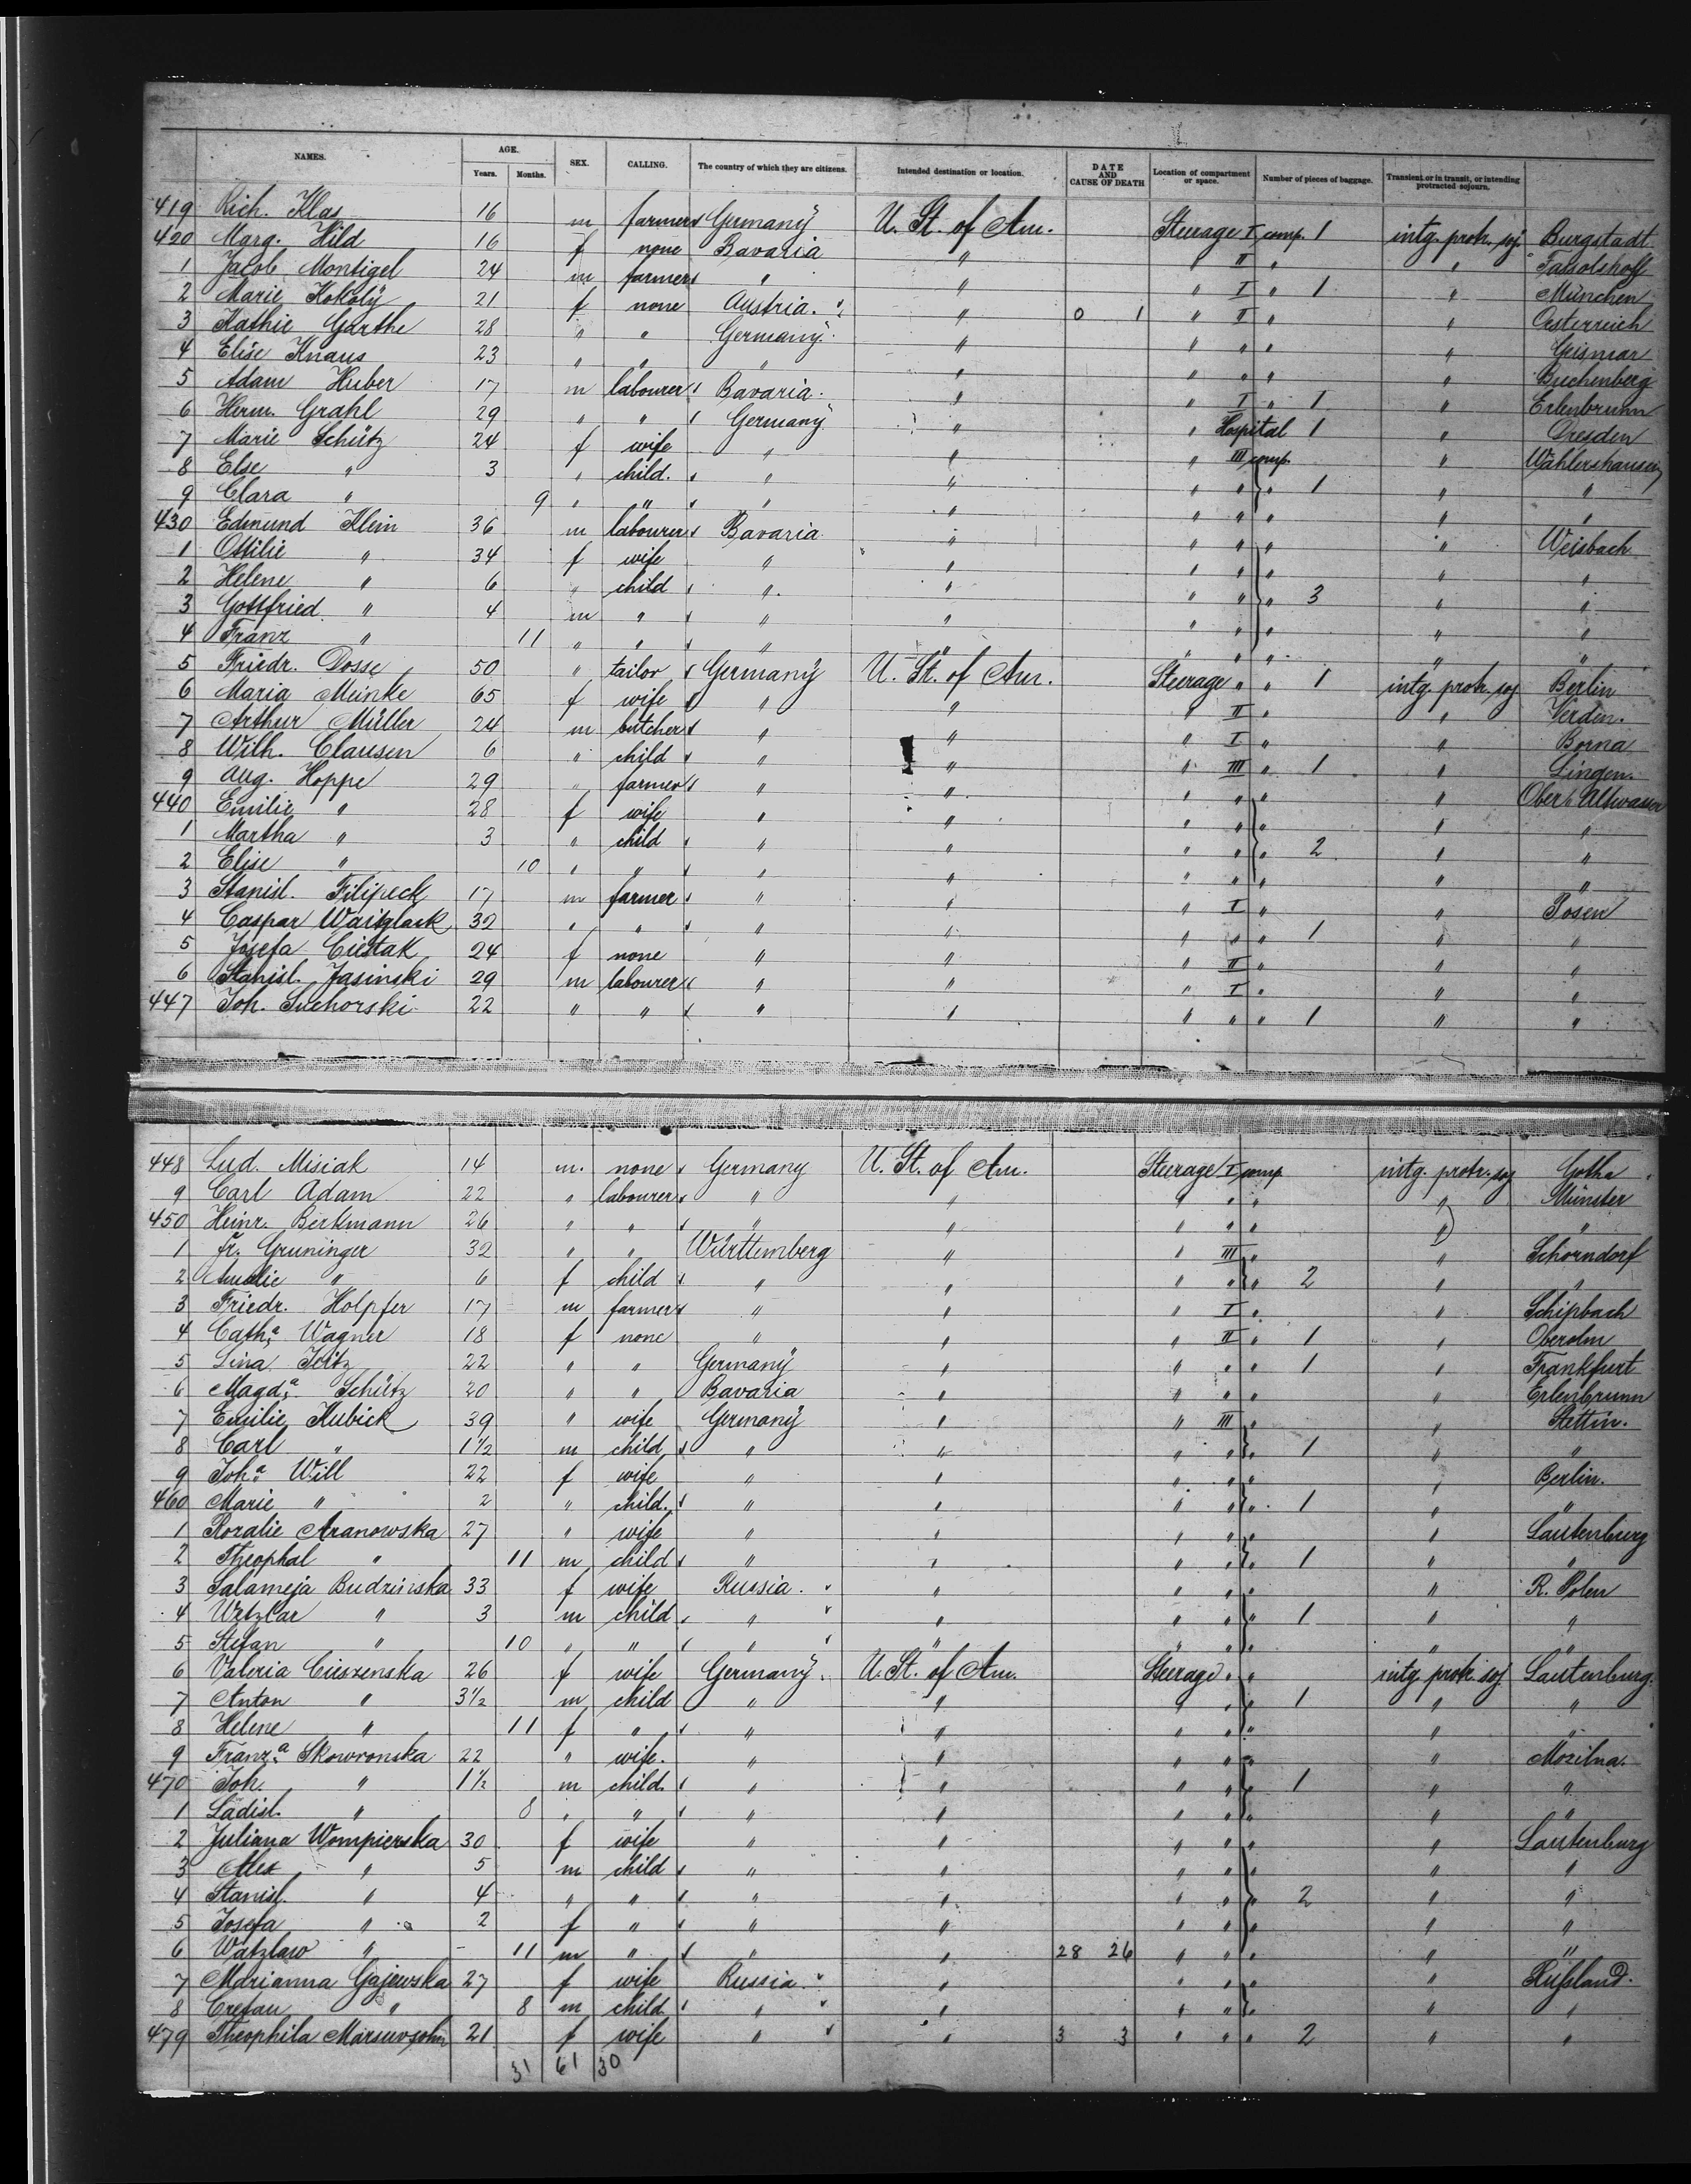 NAMES. AGE. Years. Months. SEX. CALLING. The country of which they are citizens. Intended destination or location. DATE AND CAUSE OF DEATH Location of compartment or space. Number of pieces of baggage. Transient or in transit, or intending protracted sojourn.
419 Rich. Klas 16 m farmer Germany U. St. of Am. Steerage I comp. 1 intg. protr. soj. Burgstadt
420 Marg. Hild 16 f none Bavaria " " II " "
1 Jacob Montigel 24 m farmer " " " I " 1 " München
2 Marie Kokolÿ 21 f none Austria. " 0 1 " II " " Oesterreich
3 Kathie Garthe 28 " " Germany " " " " " Geismar
4 Elise Knaus 23 " " " " " " " " Buchenberg
5 Adam Huber 17 m labourer Bavaria " " I " 1 " Erlenbrunn
6 Herm. Grahl 29 " " Germany " " Hospital 1 " Dresden
7 Marie Schütz 24 f wife " " " III comp. " Wahlershausen
8 Else " 3 " child. " " " " " 1 " "
9 Clara " 9 " " " " " " " " "
430 Edmund Klein 36 m labourer Bavaria " " " " " Weisbach
1 Ottilie " 34 f wife " " " " " " "
2 Helene " 6 " child " " " " " 3 " "
3 Gottfried " 4 m " " " " " " " "
4 Franz " 11 " " " " " " " " "
5 Friedr. Dosse 50 " tailor Germany U. St. of Am. Steerage " " 1 intg. protr. soj. Berlin
6 Maria Meinke 65 f wife " " " II " " Verden.
7 Arthur Müller 24 m butcher " " " I " " Borna
8 Wilh. Clausen 6 " child " " " III " 1 " Lingen.
9 Aug. Hoppe 29 " farmer " " " " " " Ober Altwasser
440 Emilie " 28 f wife " " " " " " "
1 Martha " 3 " child " " " " " 2 " "
2 Elise " 10 " " " " " " " " "
3 Stanisl. Filipeck 17 m farmer " " " I " " Posen
4 Caspar 32 " " " " " " " 1 " "
5 Josefa Ciestak 24 f none " " " II " " "
6 Stanisl. Jasinski 29 m labourer " " " I " " "
447 Joh. Suchorski 22 " " " " " " " 1 " "
448 Lud. Misiak 14 m. none Germany U. St. of Am. Steerage I comp intg. protr. soj Gotha
9 Carl Adam 22 " labourer " " " " " " Münster
450 Heinr. Berkmann 26 " " " " " " " " "
1 Fr. Gruninger 32 " " Württemberg " " III " " Schorndorf
2 Amalie " 6 f child " " " " " 2 " "
3 Friedr. Holpfer 17 m farmer " " " I " " Schipbach
4 Cath.a Wagner 18 f none " " " II " 1 " Oberolm
5 Lina 22 " " Germany " " " " 1 " Frankfurt
6 Magd.a Schütz 20 " " Bavaria " " " " " Erlenbrunn
7 Emilie Kubick 39 " wife Germany " " III " " Stettin.
8 Carl " 1 1/2 m child " " " " " 1 " "
9 Joh.a Will 22 f wife " " " " " " Berlin.
460 Marie " 2 " child. " " " " " 1 " "
1 Roralie Aranowska 27 " wife " " " " " " Lautenburg
2 Theophal " 11 m child " " " " " 1 " "
3 Salameja Budzinska 33 f wife Russia. " " " " " R. Polen
4 Wetzlar " 3 m child " " " " " 1 " "
5 Stefan " 10 " " " " " " " " "
6 Valeria Cieszenska 26 f wife Germany. U. St. of Am. Steerage " " intg. protr. soj. Lautenburg.
7 Anton " 3 1/2 m child " " " " " 1 " "
8 Helene " 11 f " " " " " " " "
9 Franz.a Skowronska 22 " wife. " " " " " " Mozilna.
470 Joh. " 1 1/2 m child. " " " " " 1 " "
1 Ladisl. " 8 " " " " " " " " "
2 Juliana Wompierska 30 f wife " " " " " " Lautenburg
3 Alex " 5 m child " " " " " " "
4 Stanisl. " 4 " " " " " " " 2 " "
5 Josefa " 2 f " " " " " " " "
6 Watzlaw " - 11 m " " " 28 26 " " " " "
7 Marianna Gajewska 27 f wife Russia. " " " " " Rußland.
8 Crefau " 8 m child " " " " " " "
479 Theophila 21 f wife " " 3 3 " " " 2 " "
31 61 30